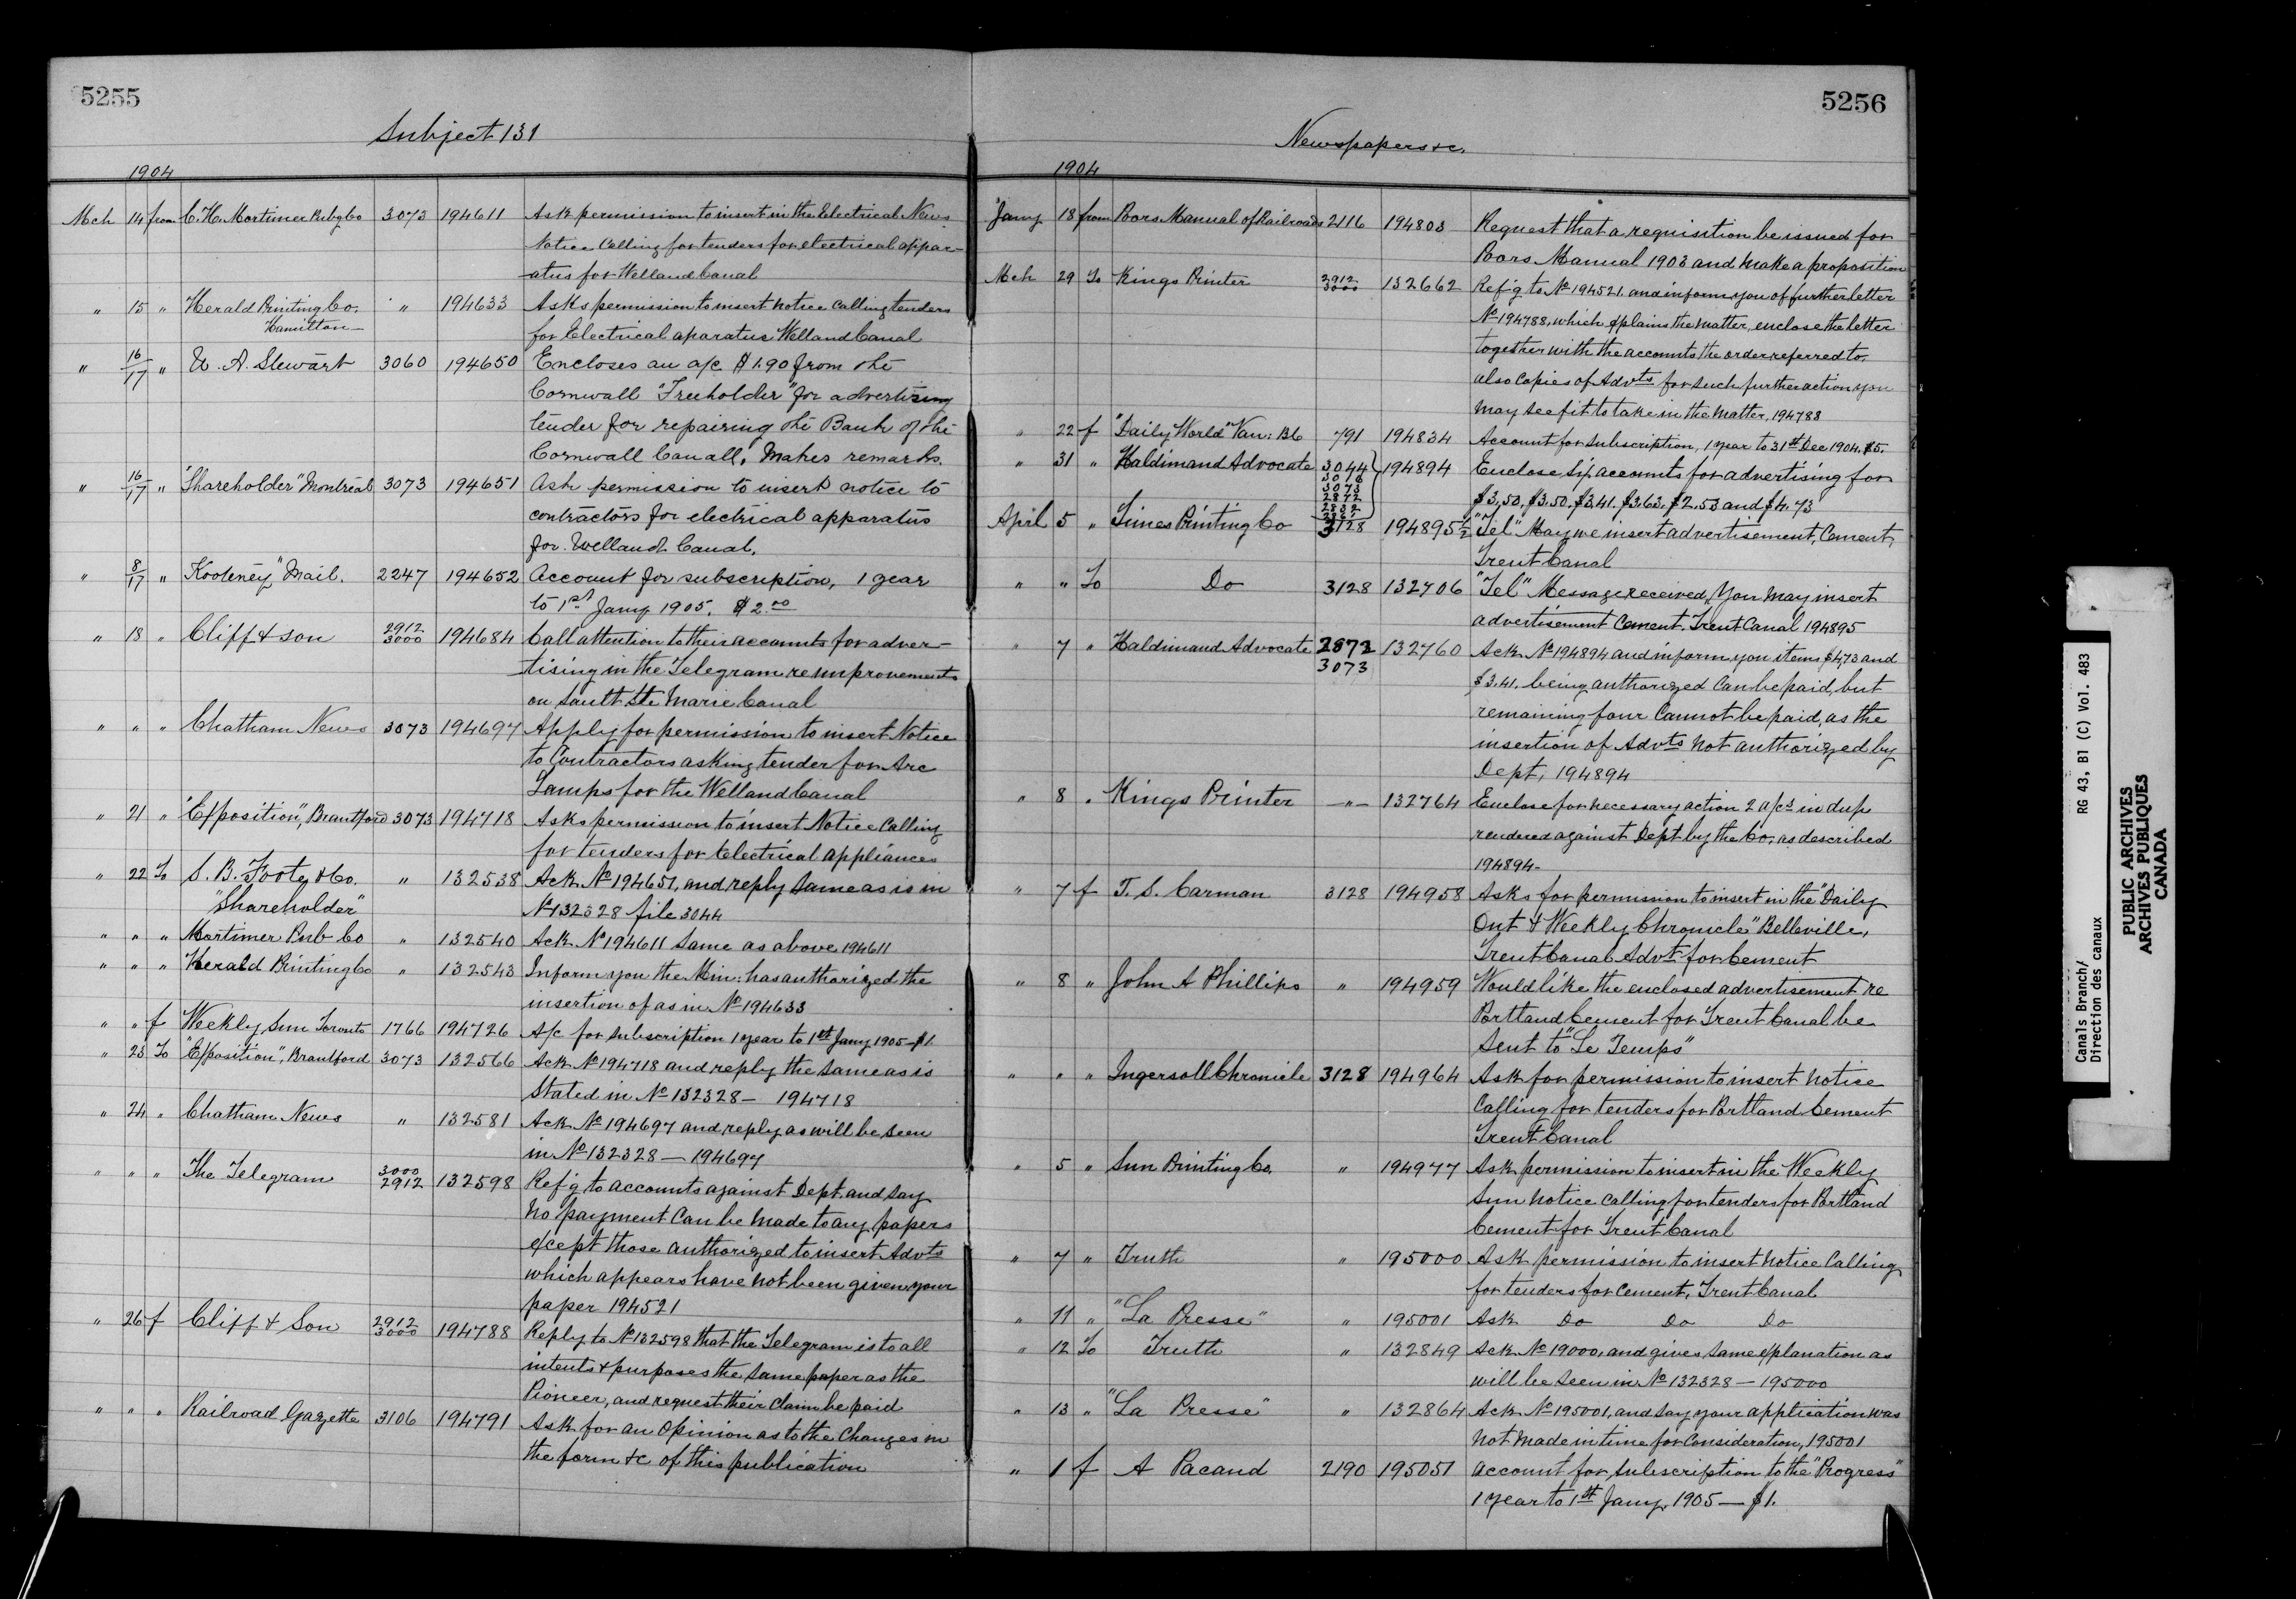 5255
Subject 131
1904
Mch 14 from C. H. Mortimer Pub'g Co 3073 194611 Ask permission to insert in the Electrical News
Notice Calling for tenders for electrical appar-
-atus for Welland Canal
" 15 " Herald Printing Co. " 194633 Asks permission to insert notice calling tenders
Hamilton
for Electrical aparatus Welland Canal
" 16/17 " A. Stewart 3060 194650 Encloses an a/c $1.90 from the
Cornwall "Freeholder" for advertising
tender for repairing the Bank of the
Cornwall Canall, Makes remarks.
" 16/17 " "Shareholder" Montreal 3073 194651 Ask permission to insert notice to
contractors for electrical apparatus
for Welland Canal.
" 8/17 " Kooteney "Mail. 2247 194652 Account for subscription, 1 year
to 1st Jany 1905. $2.00
" 18 " Cliff & son 2912 3000 194684 Call attention to their accounts for adver-
tising in the Telegram re improvements
on Sault Ste Marie Canal
" " " Chatham News 3073 194697 Apply for permission to insert Notice
to Contractors asking tender for Arc
Lamps for the Welland Canal
" 21 " "Exposition", Brantford 3073 194718 Asks permission to insert Notice Calling
for tenders for Electrical appliances
" 22 To S. B. Foote & Co. " 132538 Ack No 194651, and reply same as is in
"Shareholder"
No 132328 file 3044
" " " Mortimer Pub Co " 132540 Ack No 194611 same as above 194611
" " " Herald Printing Co " 132543 Inform you the Min: has authorized the
insertion of as in No 194633
" " f Weekly Sun Toronto 1766 194726 A/c for subscription 1 year to 1st Jany 1905 - $1.
" 23 To "Exposition", Brantford 3073 132566 Ack No 194718 and reply the same as is
Stated in No 132328 - 194718
" 24 " Chatham News " 132581 Ack No 194697 and reply as will be seen
in No 132328 - 194697
" " " The Telegram 3000 2912 132598 Ref'g to accounts against Dept. and say
No payment Can be made to any papers
except those authorized to insert Advts
which appears have not been given your
paper 194521
" 26 f Cliff & Son 2912 3000 194788 Reply to No 132598 that the Telegram is to all
intents & purposes the same paper as the
Pioneer, and request their claim be paid
" " " Railroad Gazette 3106 194791 Ask for an Opinion as to the Changes in
the form &c of this publication
5256
Newspapers &c.
1904
Jany 18 from Poors Manual of Railroads 2116 194803 Request that a requisition be issued for
Poors Manual 1903 and make a proposition
Mch 29 To Kings Printer 2912 3000 132662 Ref'g to No 194521 and inform you of further letter
No 194788, which explains the matter, enclose the letter
together with the accounts the order referred to,
also Copies of Advts for such further action you
may see fit to take in the matter, 194788
" 22 f "Daily World" Van: B6 791 194834 Account for subscription, 1 year to 31st Dec 1904. $5.
" 31 " Haldimand Advocate 3044 194894 Enclose six accounts for advertising for
3073
2872
$3.50, $3.50, $3.41. $3.63. $2.53 and $4.73
April 5 " Times Printing Co 3128 194895½ "Tel" May we insert advertisement, Cement,
Trent Canal
" " To Do 3128 132706 "Tel" Message received, You may insert
advertisement Cement. Trent Canal 194895
" 7 " Haldimand Advocate 2872 132760 Ack No 194894 and inform you items $4.73 and
3073
$3.41. being authorized Can be paid, but
remaining four Cannot be paid, as the
insertion of Advts not authorized by
Dept, 194894
" 8 " Kings Printer -"- 132764 Enclose for necessary action 2 a/cs in dup
rendered against Dept by the Co. as described
194894-
" 7 f T. S. Carman 3128 194958 Asks for permission to insert in the "Daily
Ont & Weekly Chronicle" Belleville,
Trent Canal Advt for Cement
" 8 " John A Phillips " 194959 Would like the enclosed advertisement re
Portland Cement for Trent Canal be
sent to "Le Temps"
" " " Ingersoll Chronicle 3128 194964 Ask for permission to insert notice
Calling for tenders for Portland Cement
Trent Canal
" 5 " Sun Printing Co. " 194977 Ask permission to insert in the Weekly
Sun notice calling for tenders for Portland
Cement for Trent Canal
" 7 " Truth " 195000 Ask permission to insert notice Calling
for tenders for Cement, Trent Canal
" 11 " "La Presse" " 195001 Ask Do Do Do
" 12 To Truth " 132849 Ack No 19000, and gives same explanation as
will be seen in No 132328 - 195000
" 13 " "La Presse" " 132864 Ack No 195001, and say your application was
not made in time for Consideration, 195001
" 1 f A Pacaud 2190 195051 account for subscription to the "Progress"
1 year to 1st Jany, 1905 - $1.
Canals Branch/
Direction des canaux
RG 43, B1 (C) Vol. 483
PUBLIC ARCHIVES
ARCHIVES PUBLIQUES
CANADA